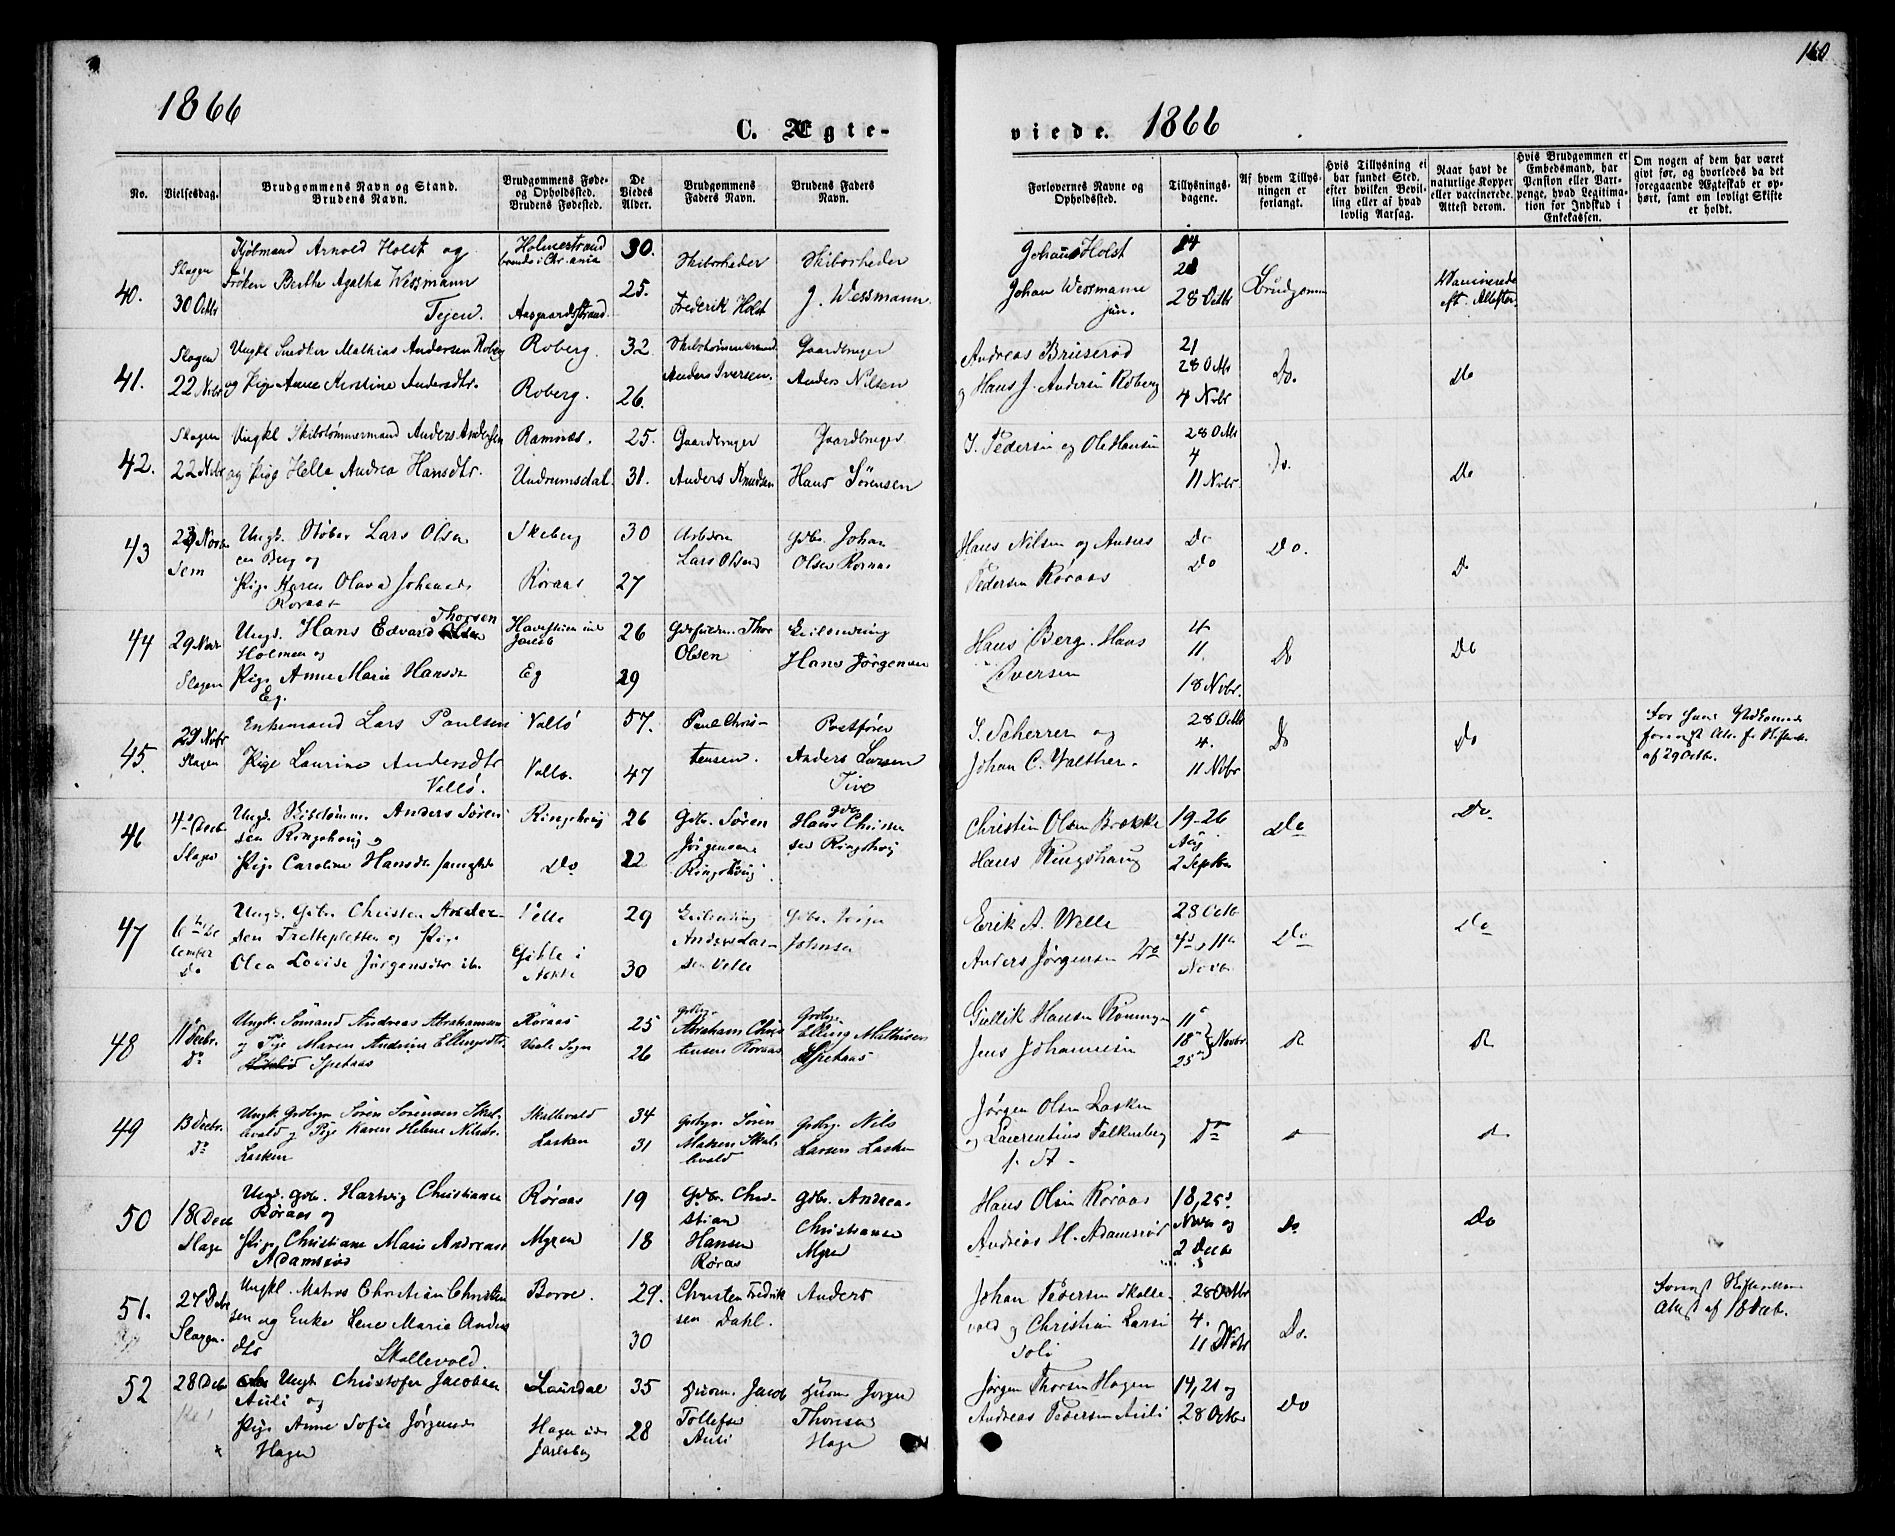 160
1866
C. Ægte-
viede. 1866
No.
Vielsesdag.
Brudgommens Navn og Stand.
Brudens Navn.
Brudgommens Føde-
og Opholdssted.
Brudens Fødested.
De
Viedes
Alder.
Brudgommens
Faders Navn.
Brudens Faders
Navn.
Forlovernes Navne og
Opholdssted.
Tillysnings-
dagene.
Af hvem Tillys-
ningen er
forlangt.
Hvis Tillysning ei
har fundet Sted,
efter hvilken Bevil-
ling eller af hvad
lovlig Aarsag.
Naar havt de
naturlige Kopper
eller vaccinerede.
Attest derom.
Hvis Brudgommen er
Embedsmand, har
Pension eller Vart-
penge, hvad Legitima-
tion for Indskud i
Enkekassen.
Om nogen af dem har været
gift før, og hvorledes da det
foregaaende Ægteskab er op-
hørt, samt om lovligt Skifte
er holdt.
40.
Slagen
30 Octbr
Kjøbmand Arnold Holst og
Frøken Berthe Agathe Wessmann
Tejen.
Holmestrand
Aasgaardsstrand
30.
25.
Skibsrheder
Frederik Holst
Skibsrheder
J. Wessmann.
Johan Holst
Johan Wessmann
jun.
14
21
28 Octbr
Brudgommen
Vaccinerede
eft. Attester
41.
Slagen
22 Novbr
Ungkl Snedker Mathias Andersen Roberg
og Pige Anne Kirstine Andersdtr.
Roberg.
Roberg.
32.
26.
Skibstømmermand
Anders Iversen.
Gaardbruger
Anders Nilsen
Andreas Bruserød
og Hans J. Andersen Roberg
21
28 Octbr
4 Novbr
Do.
Do
42.
Slagen
22 Novbr
Ungkl Skibstømmermand Anders Andersen
og Pige Helle Andrea Hansdtr.
Ramnæs.
Undrumsdal.
25.
31.
Gaardbruger
Anders Knudsen
Gaardbruger
Hans Sørensen
I. Pedersen og Ole Hansen
28 Octbr
4
11 Novbr.
Do.
Do
43
23 Novbr
Sem
Ungk. Lars Olsen
Berg og
Pige Karen Olava Johansdr
Røraas
Skeberg
Røraas
30
27
Lars Olsen
Gdbr. Johan
Olsen Røraas
Hans Nilsen og Anders
Pedersen Røraas
Do
Do
Do.
Do
44
29 Novbr
Slagen
Thorsen
Ungk. Hans Edvard Olsen
Holmen og
Pige Anne Marie Hansdr
Eg.
Eg
26
29
Thor
Olsen
Hans Jørgensen
Hans Berg. Hans
Iversen
4
11.
18 Novbr.
Do
Do
45.
29 Novbr
Slagen
Enkemand Lars Paulsen
Pige Laurine Andersdtr
Valløe.
Vallø
Vallø.
57.
47
Paul Chris-
tensen.
Postfører
Anders Larsen
J. Scherrer og
Johan C. Walther.
28 Octbr
4.
11 Novbr
Do
Do
af 29 Octbr.
46
4de Decbr
Slagen
Ungk. Skibstømm. Anders Søren
sen Ringshoug og
Pige Caroline Hansdtr
Ringshoug
Do
26
22
Gdb. Søren
Jørgensen
Ringshoug.
Gdbr
Hans Christen
sen Ringshoug
Christen Olsen Brække
Hans Ringshaug
19-26
Aug
2 Septbr
Do
Do.
47
6te De
cember
Do
Ungk. Gdbr. Christen Ander-
sen Trettepletten og Pige
Olea Lovise Jørgensdtr
Velle
29
30
Anders Lar-
sen Velle
Johnsen
Erik A. Welle
Anders Jørgensen Do
28 Octb
4de, 11te
Novbr.
Do
Do
48
11 Decbr.
Do
Ungk. Sømand Andreas Abrahamsen
og Pige Maren Andrine Ellingsdtr.
Spetaas
Røraas
Vaale Sogn
25
26
Gdbgr.
Abraham Chris
tensen Røraas
Gdbgr.
Elling Mathisen
Spetaas
Gullik Hansen Rønningen
Jens Johannesen
11
18 Novbr
25
Do
Do
49
13 Decbr.
Do
Ungk. Gdbgr Søren Sørensen Skal-
levald og Pige Karen Helene Nilsdtr.
Lasken
Skallevald
Lasken
34
31
Gdbgr. Søren
Madsen Skal-
levald
Gdbgr. Nils
Larsen Lasken
Jørgen Olsen Lasken
og Laurentius Falkenberg
Do
50
18 Decb
Slagen
Ungk. Gdbr. Hartvig Christiansen
Røraas og
Pige Christiane Marie Andreasdr
Adamsrød
Røraas
Myren
19
18
Gdbr. Chri-
stian
Hansen
Røraas
Gdbr. Andreas
Christiansen
Myren
Hans Olsen Røraas
Andreas H. Adamsrød
18, 25de
Novbr og
2 Decbr
Do
Do
51.
27 Decbr
Slagen.
Ungkl. Matros Christian Christen
sen og Enke Lene Marie Anders
dtr Skallevold.
Borre.
29.
30
Christen Fredrik
sen Dahl.
Anders
Johan Pedersen Skalle-
vold og Christian Larsen
Soli
28 Octbr
4.
11 Novbr
Do.
af 18 Decbr.
52
28 Decbr
Ungk. Christofer Jacobsen
Auli og
Pige Anne Sofie Jørgensdr
Hagen
Laurdal
Hagen
Jarlsberg
35
28
Huusm. Jacob
Tollefsen
Auli
Huusm. Jørgen
Thorsen
Hagen
Jørgen Thorsen Hagen
Andreas Pedersen Auli
14, 21 og
28 Octbr
Do